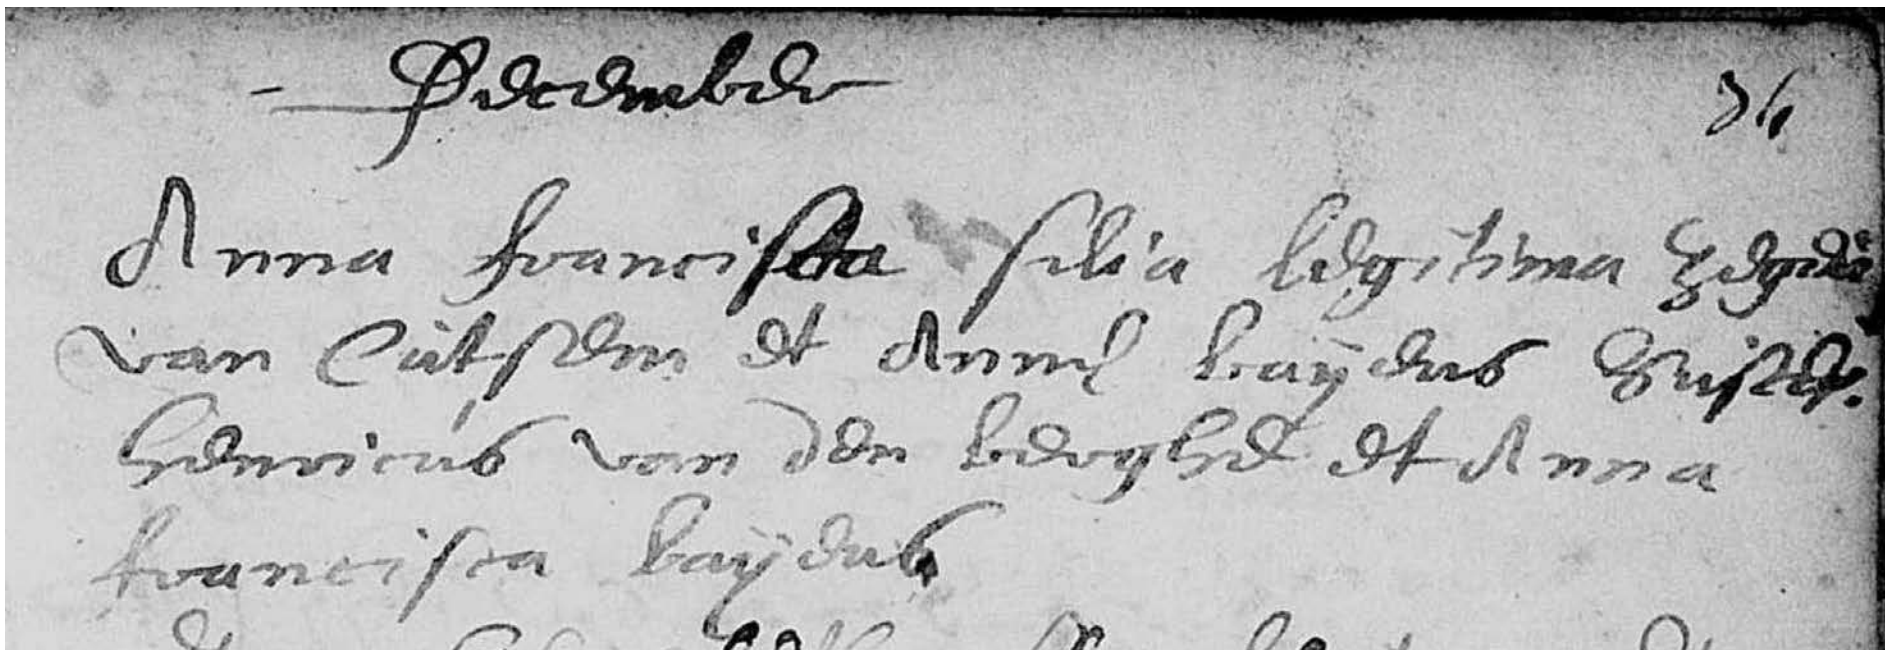 December
Anna francisca filia legitima
van Cutsem et Annæ baÿens Suscep.
henricus van den berghe et Anna
francisca baÿens